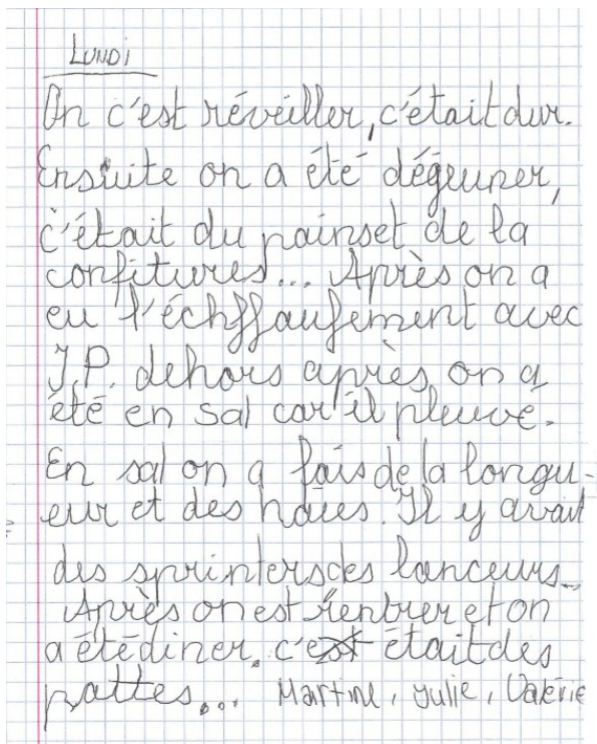 LUNDI
On c'est réveiller, c'était dur.
Ensuite on a été dégeuner,
c'était du painset de la
confitures... Après on a
eu l'échffaufement avec
J.P. dehors après on a
été en sal car il pleuvé.
En sal on a fais de la longu-
eur et des haies. Il y avait
des sprinters des lanceurs...
Après on est rentrer et on
a été diner. c'est était des
pattes... Martine, Julie, Valérie